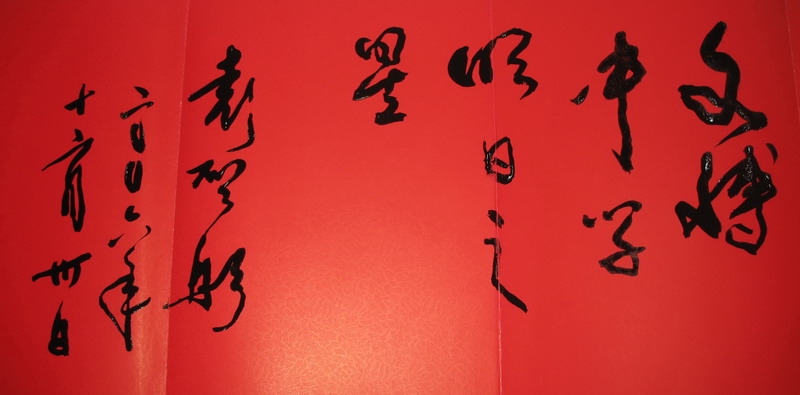 文博
中学
明日之
星
袁
二〇〇六年
十二月卅日